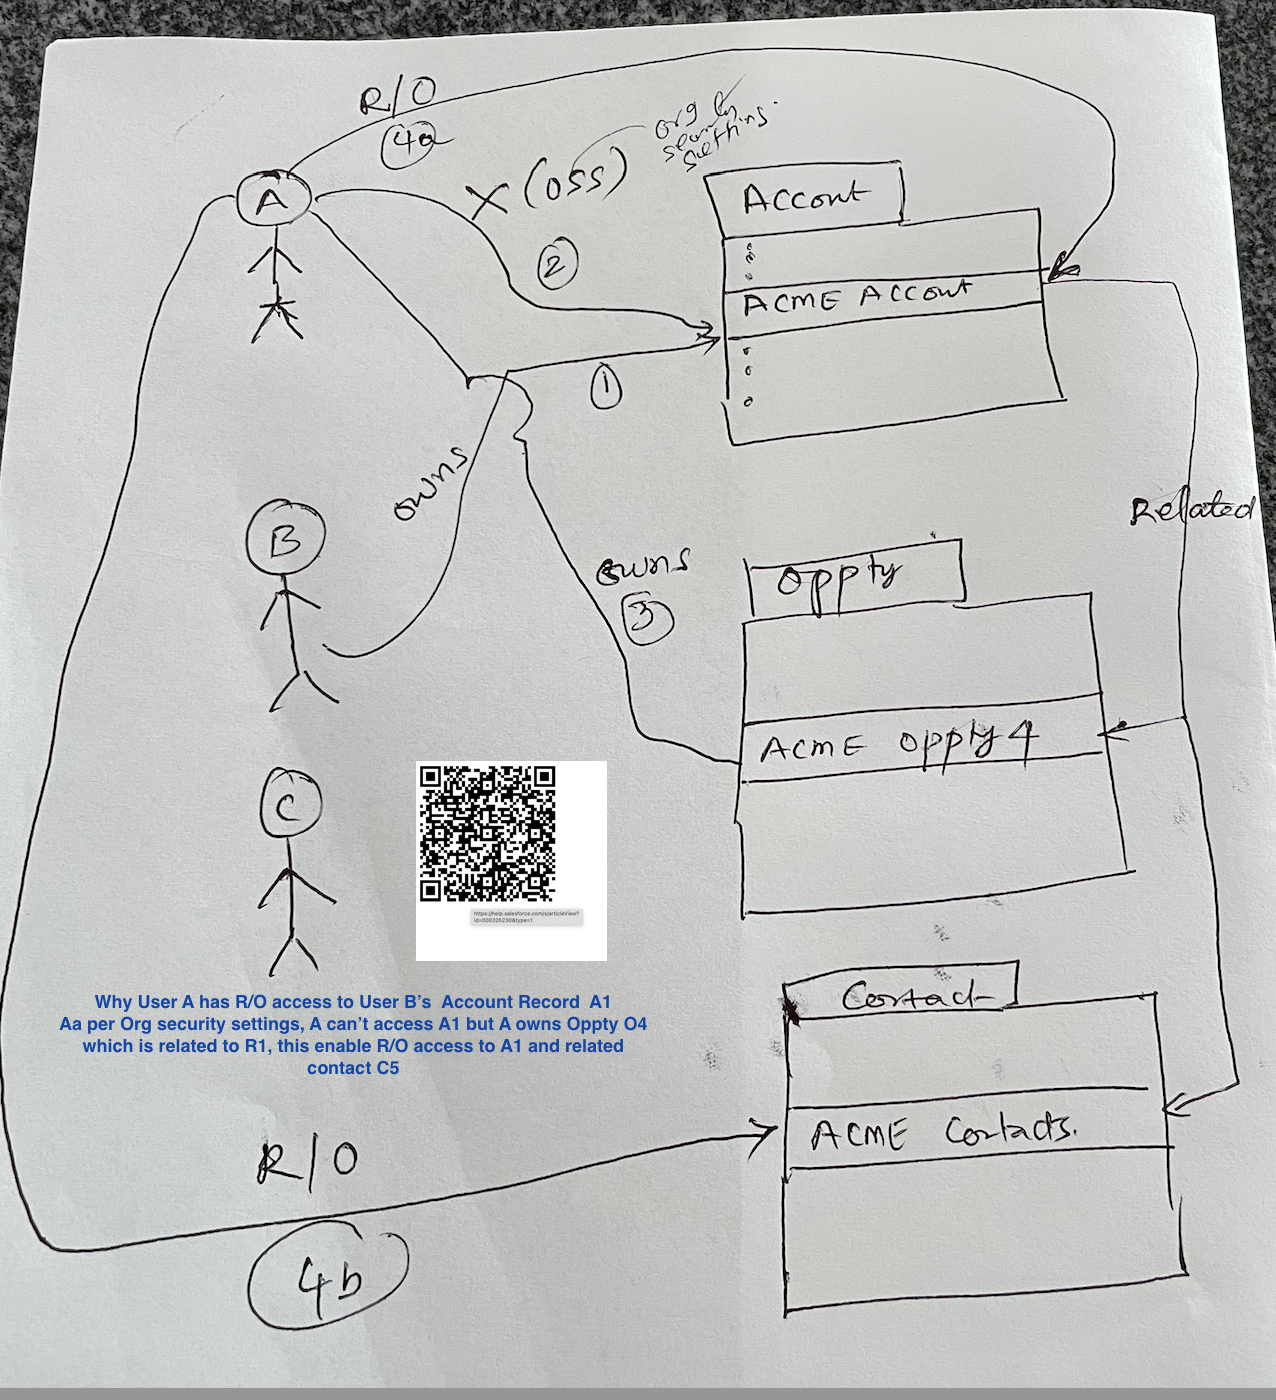 R/O
4a
X (OSS)
org
security
setting.
A
2
Account
ACME Account
1
owns
Related
B
owns
3
Oppty
ACME Oppty 4
C
https://help.salesforce.com/s/articleView?
id=000325230&type=1
Why User A has R/O access to User B's Account Record A1
Aa per Org security settings, A can't access A1 but A owns Oppty O4
which is related to R1, this enable R/O access to A1 and related
contact C5
Contact
ACME Contacts.
R/O
4b